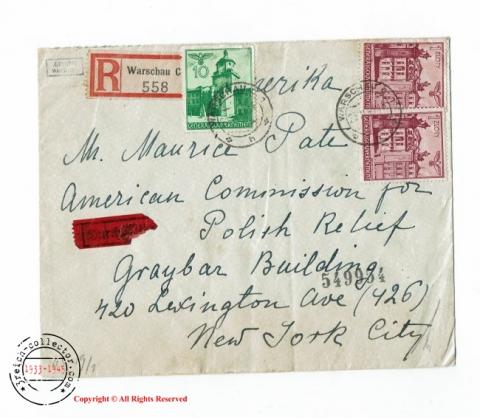 R
Warschau C
558
10
GENERALGOUVERNEMENT
Amerika
Mr. Maurice Pate
American Commission for
Polish Relief
Graybar Building
549934
420 Lexington Ave (426)
New York City
3reich-collector.com
1933-1945
Copyright © All Rights Reserved